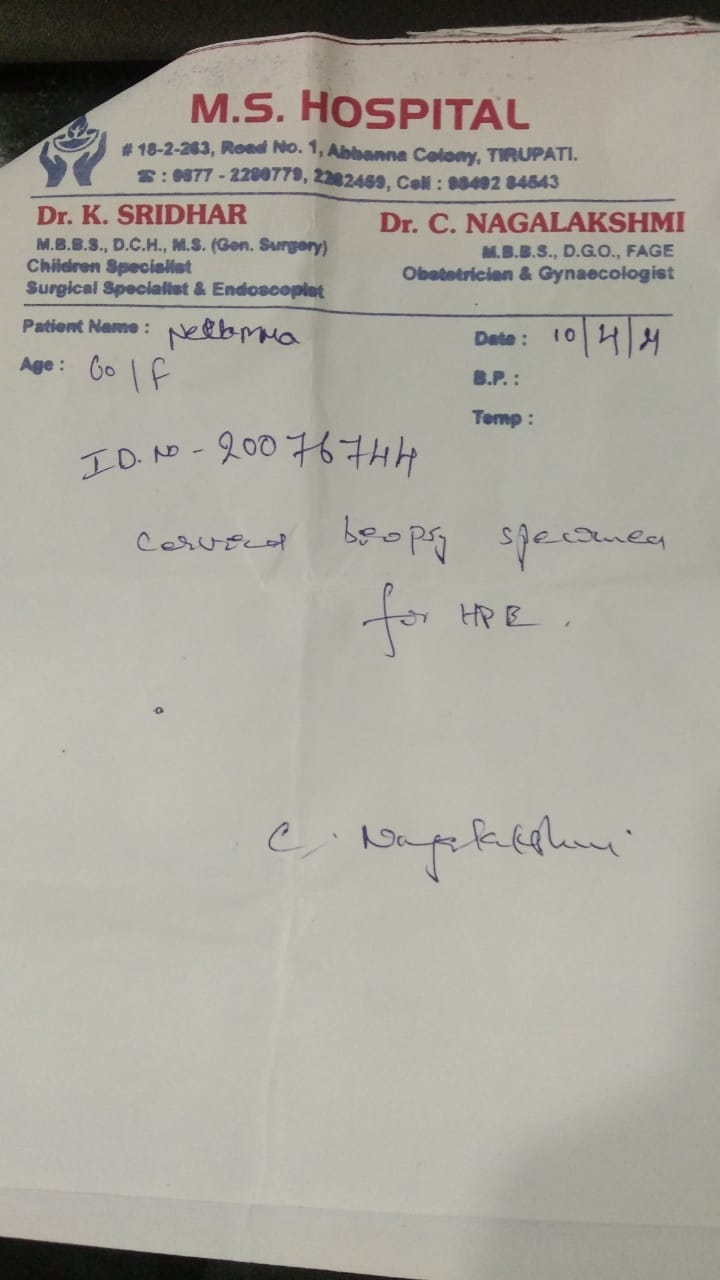 M.S. HOSPITAL
# 18-2-263, Road No. 1, Abbanna Colony, TIRUPATI.
☎ : 0877 - 2280779, 2282469, Cell : 98492 84543
Dr. K. SRIDHAR
M.B.B.S., D.C.H., M.S. (Gen. Surgery)
Children Specialist
Surgical Specialist & Endoscopist
Dr. C. NAGALAKSHMI
M.B.B.S., D.G.O., FAGE
Obstetrician & Gynaecologist
Patient Name :
Date : 10/4/21
Age : 60 / F
B.P. :
Temp :
ID. No - 20076744
Cervical biopsy specimen
for HPE.
C. Nagalakshmi